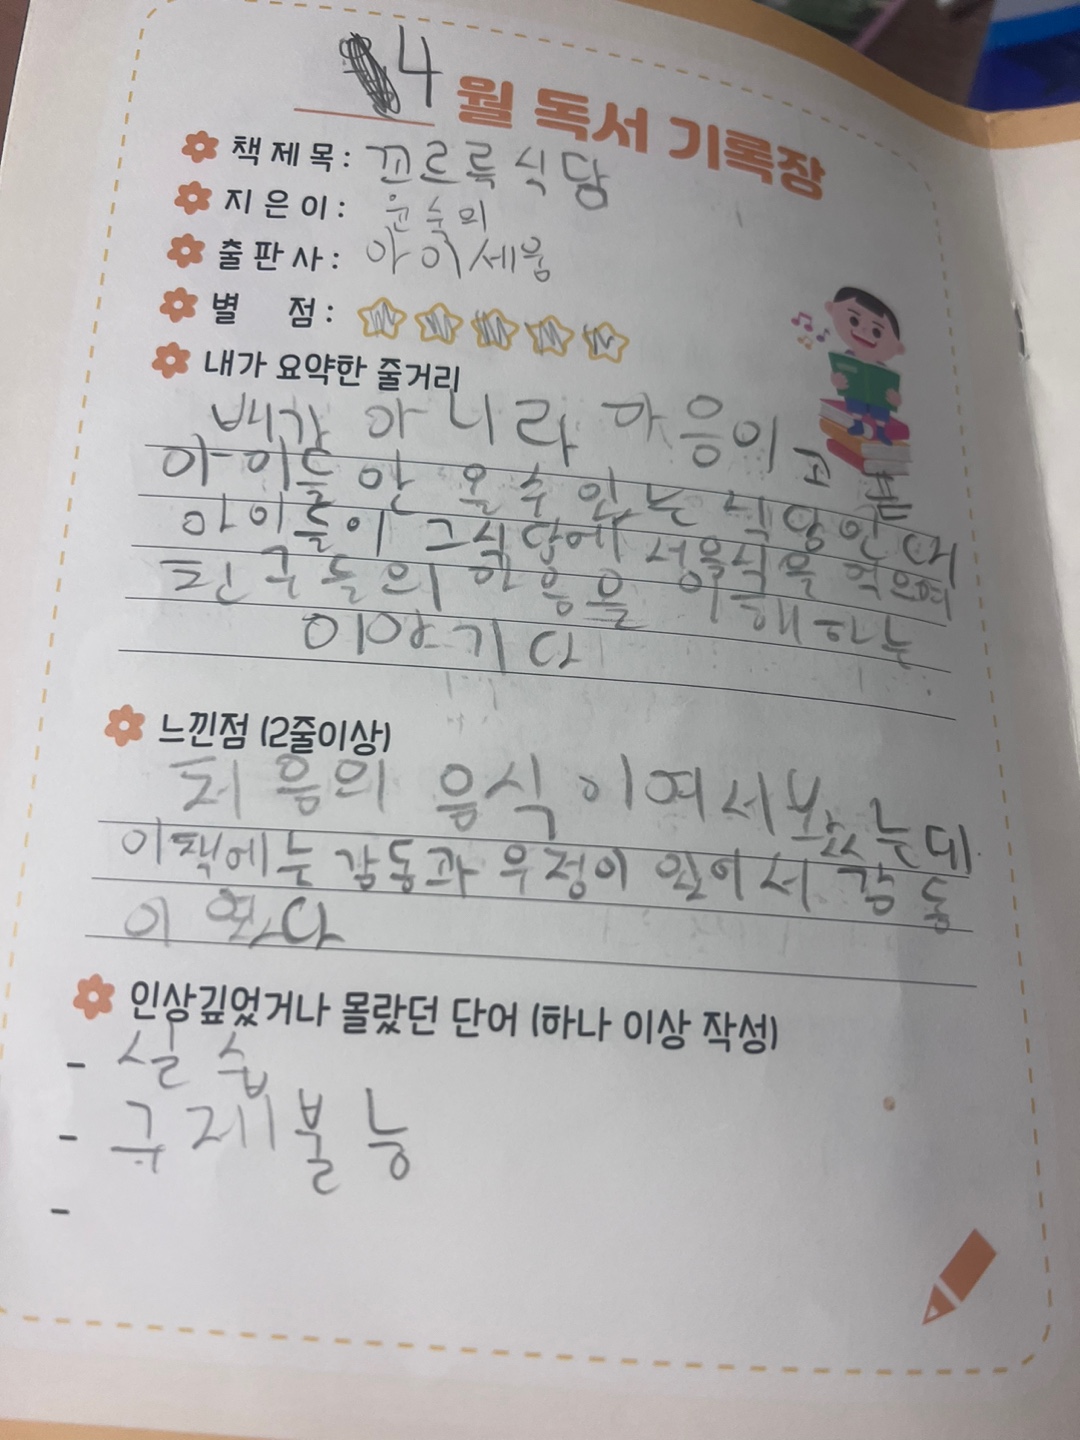 4월 독서 기록장
책제목: 꼬르륵식당
지은이: 윤숙희
출판사: 아이세움
별 점:
내가 요약한 줄거리
배가 아니라 마음이 고픈
아이들만 올 수 있는 식당인대
아이들이 그식당에서 음식을 먹으며
친구들의 마음을 이해하는
이야기다
느낀점 (2줄이상)
처음의 음식 이여서봤는데
이책에는 감동과 우정이 있어서 감동
이 였다
인상깊었거나 몰랐던 단어 (하나 이상 작성)
- 실습
- 구제불능
-